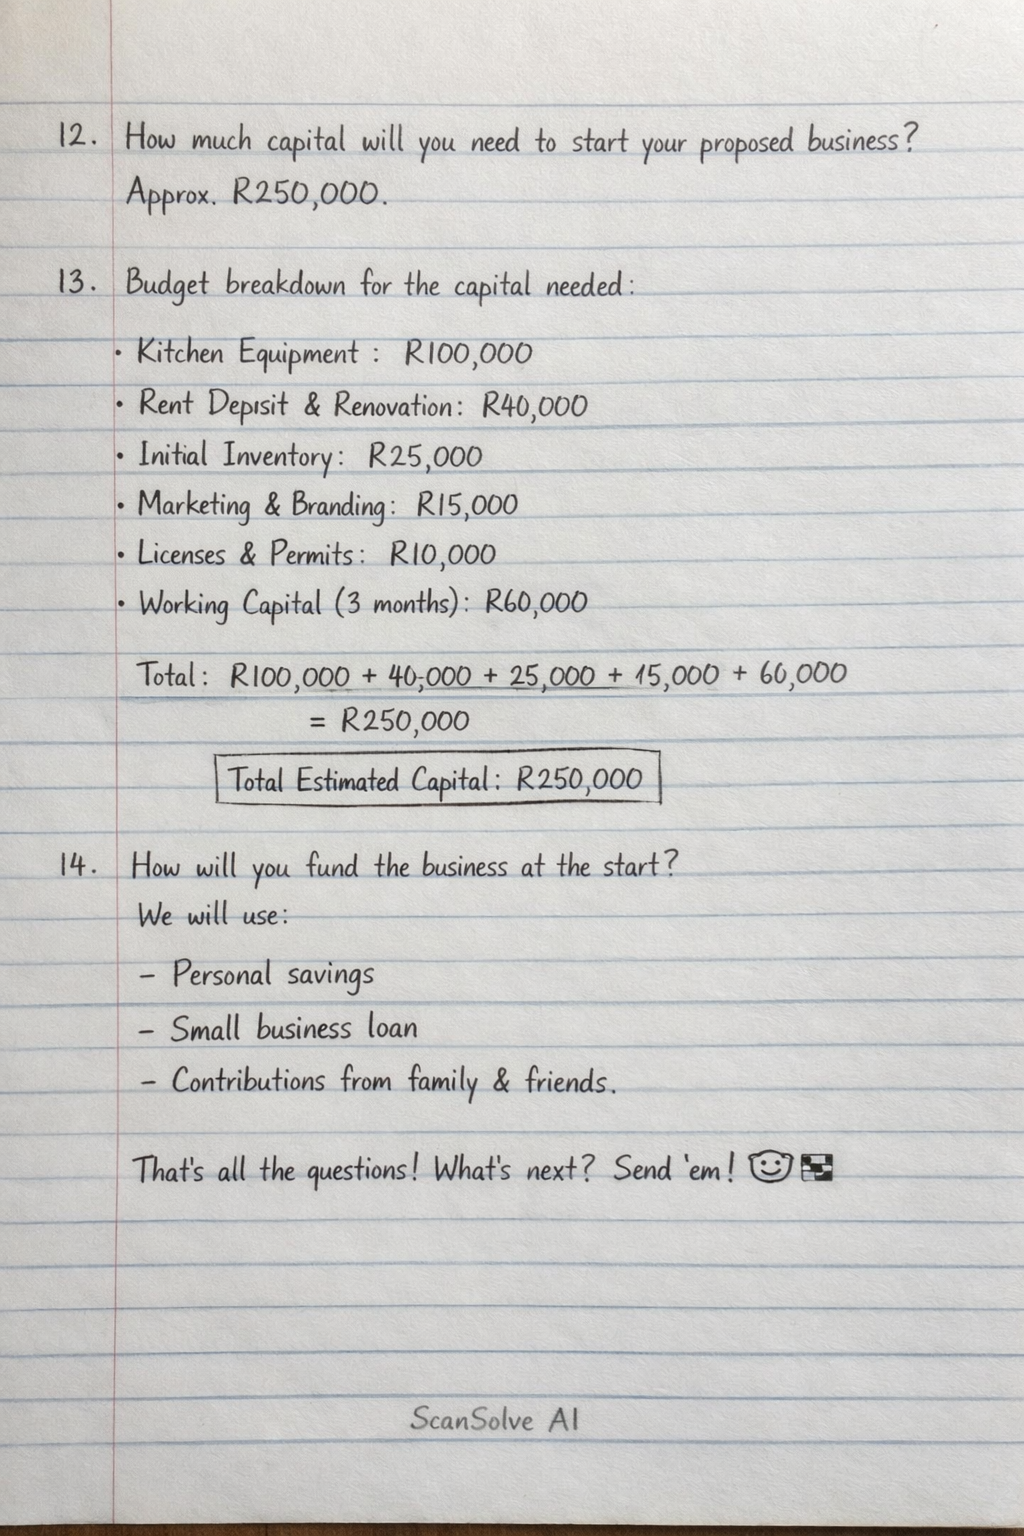 12. How much capital will you need to start your proposed business?
Approx. R250,000.
13. Budget breakdown for the capital needed:
• Kitchen Equipment : R100,000
• Rent Deposit & Renovation: R40,000
• Initial Inventory: R25,000
• Marketing & Branding: R15,000
• Licenses & Permits: R10,000
• Working Capital (3 months): R60,000
Total: R100,000 + 40,000 + 25,000 + 15,000 + 60,000
= R250,000
Total Estimated Capital: R250,000
14. How will you fund the business at the start?
We will use:
– Personal savings
– Small business loan
– Contributions from family & friends.
That's all the questions! What's next? Send 'em!
ScanSolve AI